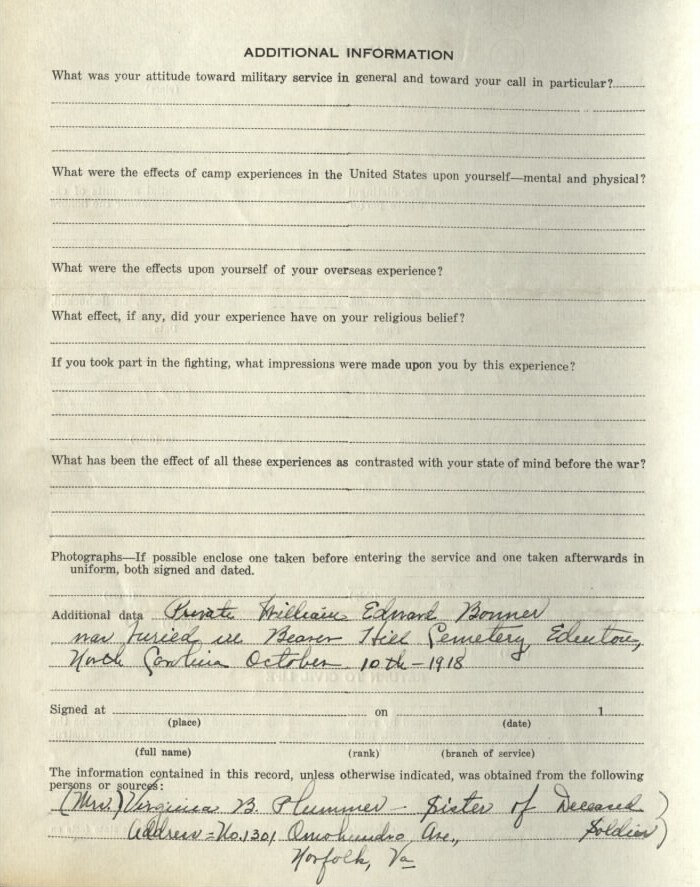 ADDITIONAL INFORMATION
What was your attitude toward military service in general and toward your call in particular?
What were the effects of camp experiences in the United States upon yourself—mental and physical?
What were the effects upon yourself of your overseas experience?
What effect, if any, did your experience have on your religious belief?
If you took part in the fighting, what impressions were made upon you by this experience?
What has been the effect of all these experiences as contrasted with your state of mind before the war?
Photographs—If possible enclose one taken before entering the service and one taken afterwards in
uniform, both signed and dated.
Additional data Private William Edward Bonner
was buried in Beaver Hill Cemetery, Edenton,
North Carolina October 10th - 1918
Signed at on 1
(place) (date)
(full name) (rank) (branch of service)
The information contained in this record, unless otherwise indicated, was obtained from the following
persons or sources:
(Mrs.) Virginia B. Plummer - Sister of Deceased
Address = No. 1301 Omohundro Ave., Soldier)
Norfolk, Va